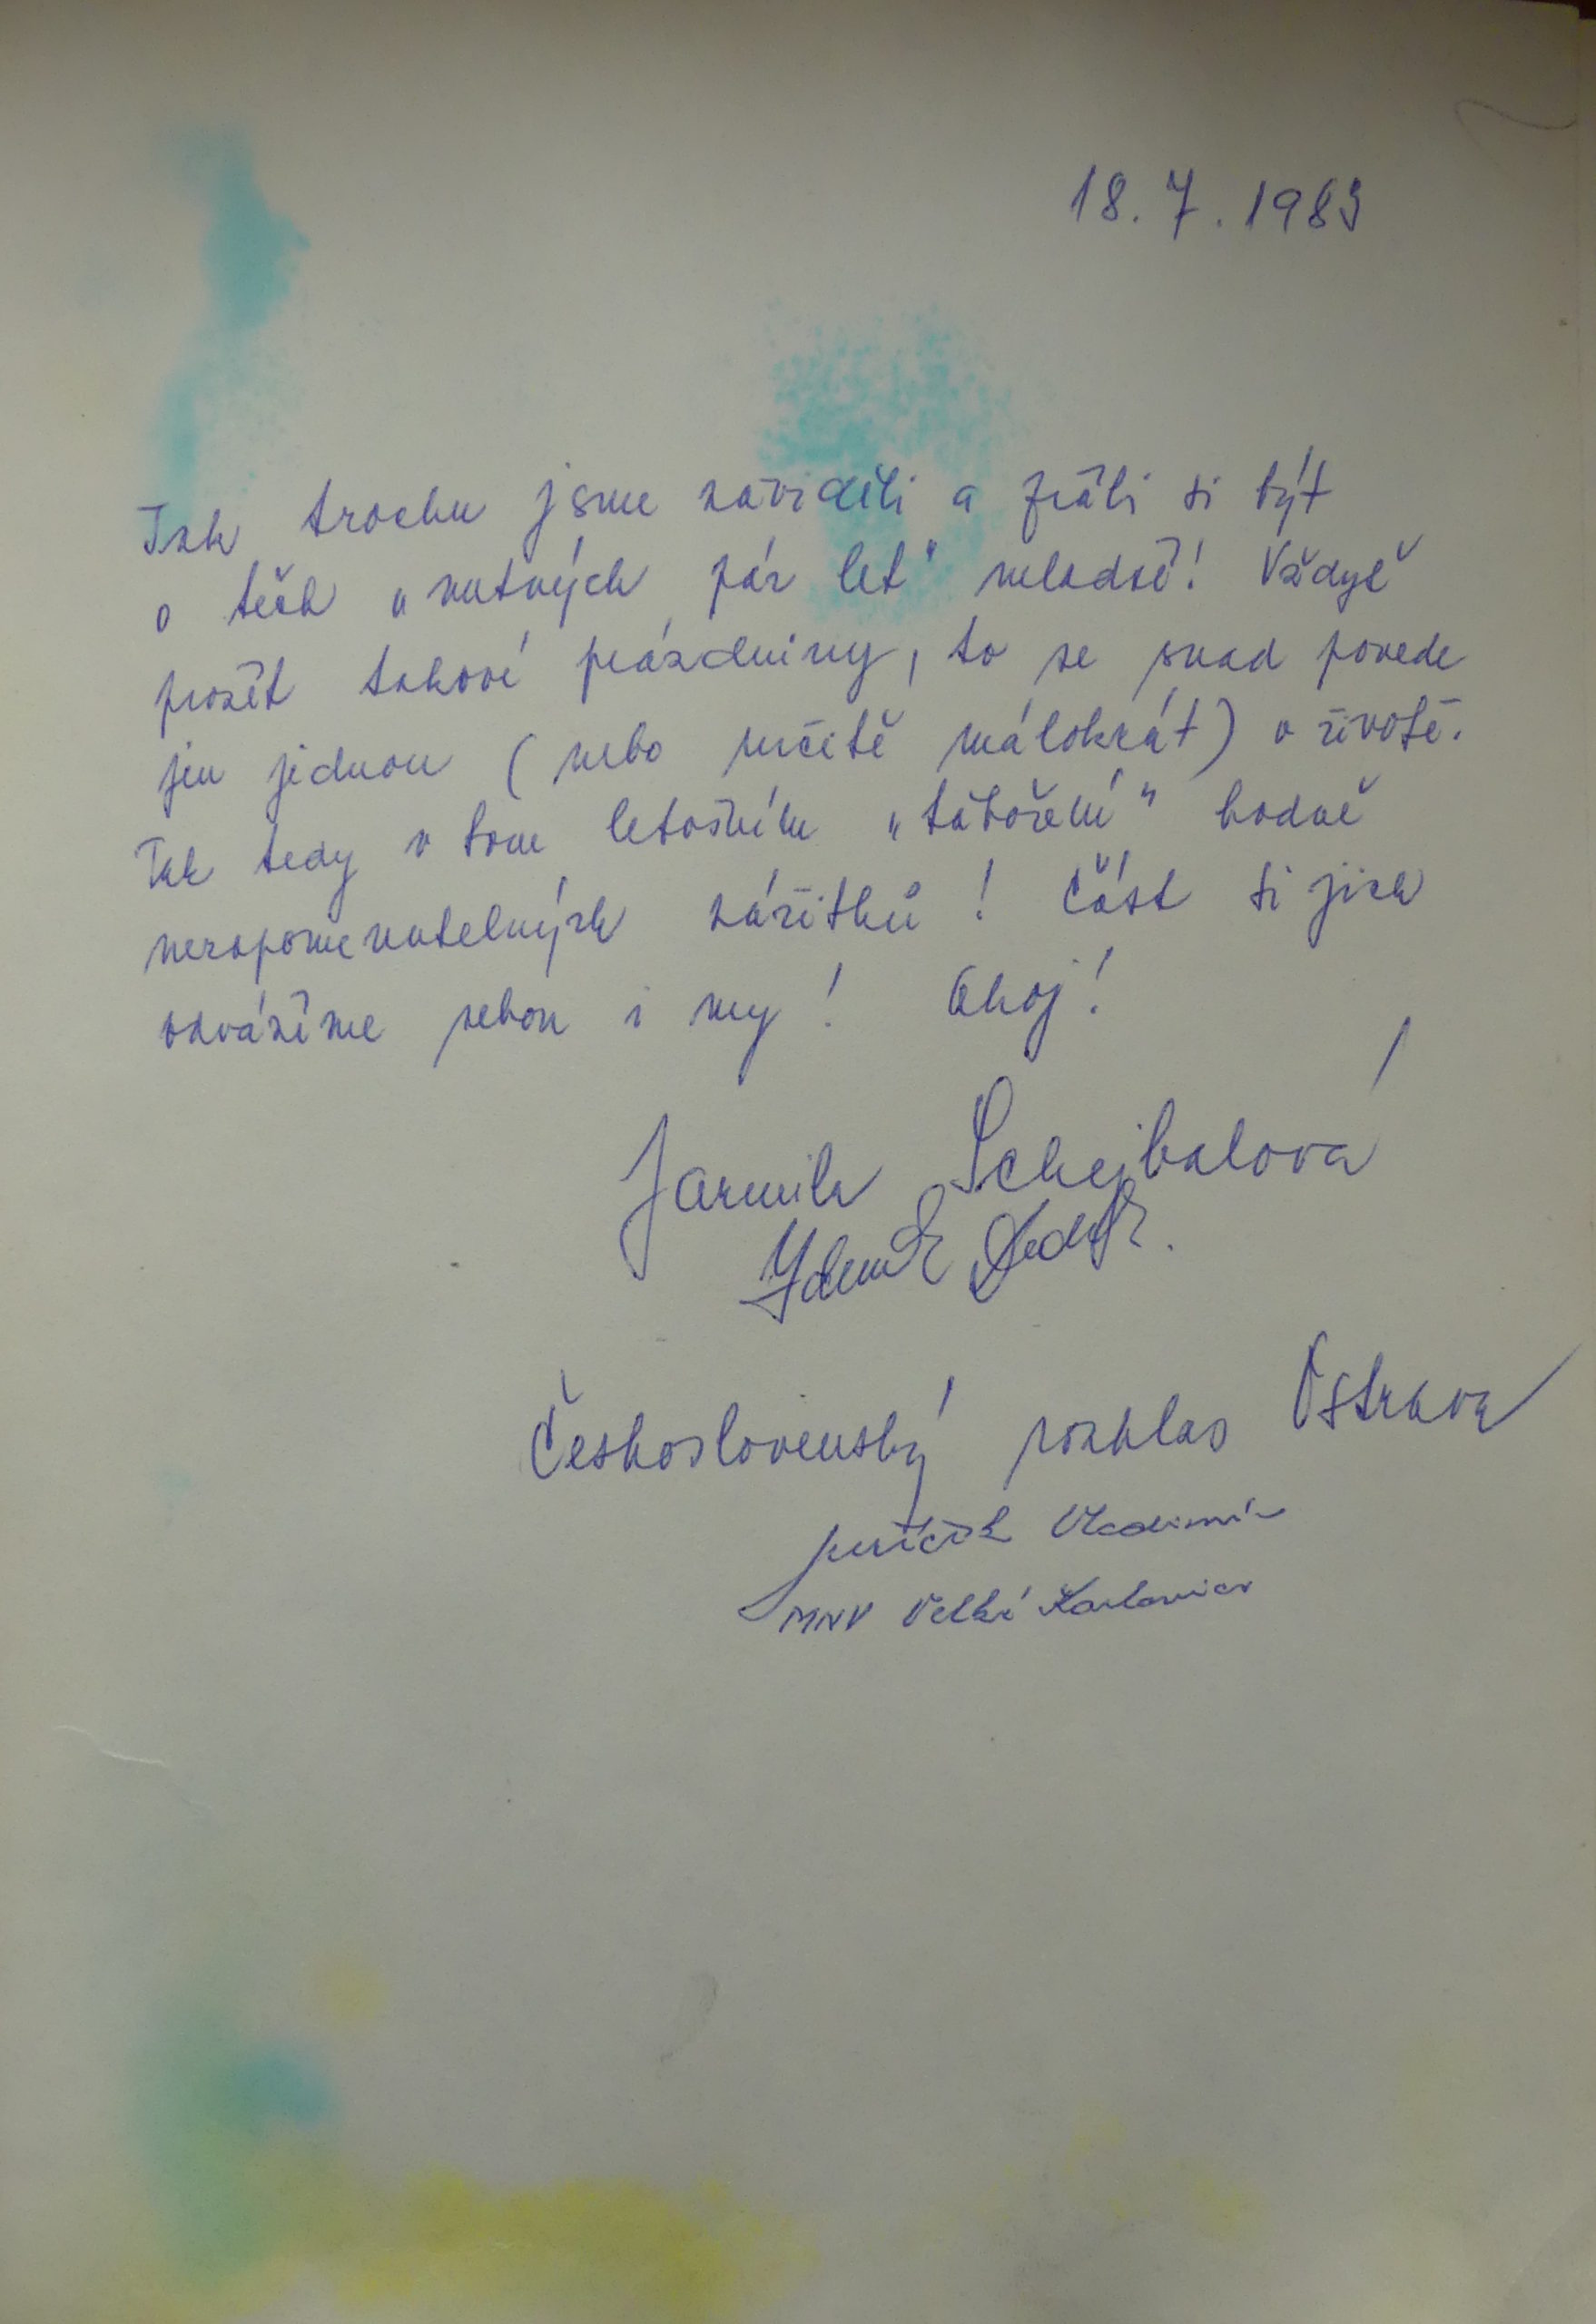 18. 7. 1983
Tak trochu jsme záviděli a přáli si být
o těch „nutných pár let" mladší! Vždyť
prožít takové prázdniny, to se snad povede
jen jednou (nebo určitě málokrát) v životě.
Tak tedy v tom letošním „táboření" hodně
nezapomenutelných zážitků! Část si jich
odvážíme sebou i my! Ahoj!
Jarmila Schejbalová
Zdeněk
Československý rozhlas Ostrava
Vladimír
MNV Velké Karlovice